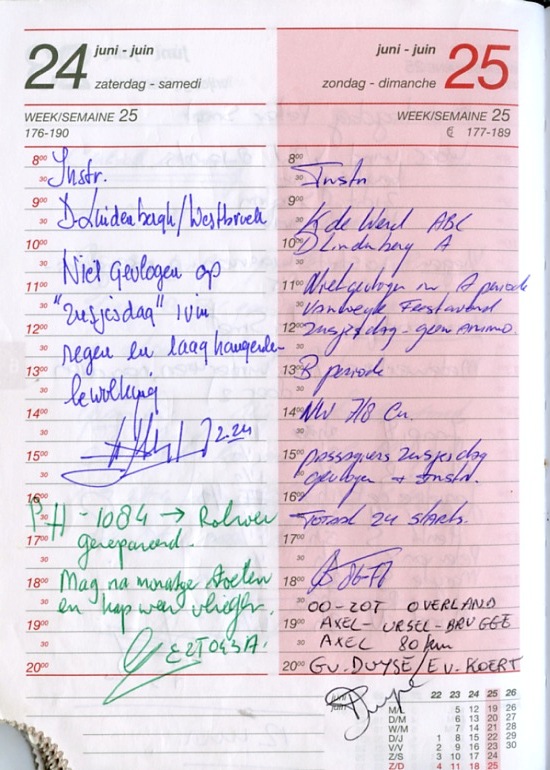 24
juni - juin
zaterdag - samedi
WEEK/SEMAINE 25
176-190
8⁰⁰ Instr.
30
9⁰⁰ D. /Westbroek
30
10⁰⁰
30 Niet gevlogen op
11⁰⁰
30 "zusjesdag" ivm
12⁰⁰
30 regen en laaghangende
13⁰⁰
30 bewolking
14⁰⁰
30
15⁰⁰
30
16⁰⁰
30 PH-1084 →
17⁰⁰ gerepareerd.
30
18⁰⁰ Mag na montage stoelen
30 en kap weer vliegen.
19⁰⁰
30
20⁰⁰
juni - juin
zondag - dimanche
25
WEEK/SEMAINE 25
177-189
8⁰⁰
30 Instr
9⁰⁰
30 K de ABC
10⁰⁰ D Lindenberg A
30
11⁰⁰ Niet gevlogen in A periode
30 vanwege
12⁰⁰ zusjesdag - geen animo.
30
13⁰⁰ B periode
30
14⁰⁰ NW 7/8 Cu.
30
15⁰⁰ passagiers zusjesdag
30 gevlogen + Instr.
16⁰⁰
30 Totaal 24 starts.
17⁰⁰
30
18⁰⁰
30 OO-ZOT OVERLAND
19⁰⁰ AXEL-URSEL-BRUGGE
30 AXEL 80 km
20⁰⁰ G.V. DUYSE/E V. KOERT
juni
juin 22 23 24 25 26
M/L 5 12 19 26
D/M 6 13 20 27
W/M 7 14 21 28
D/J 1 8 15 22 29
V/V 2 9 16 23 30
Z/S 3 10 17 24
Z/D 4 11 18 25